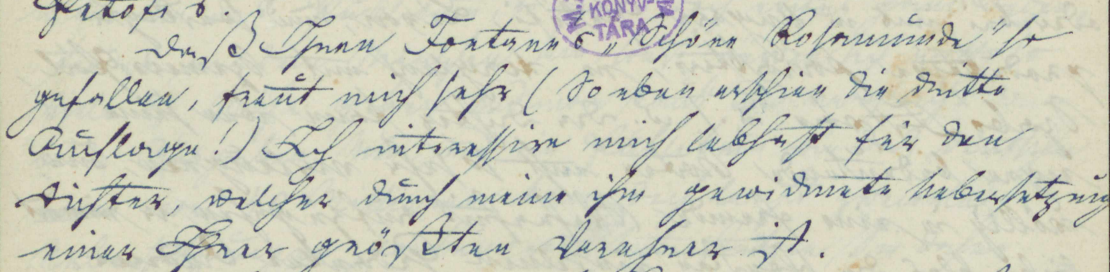 Petöfis.
M. KÖNYV-
TÁRA M
Daß Ihnen Fontanes „Schöne Rosamunde“ so
gefallen, freut mich sehr (Soeben erschien die dritte
Auflage!) Ich interessire mich lebhaft für den
Dichter, welcher durch meine ihm gewidmete Uebersetzung
einer Ihrer größten Verehrer ist.